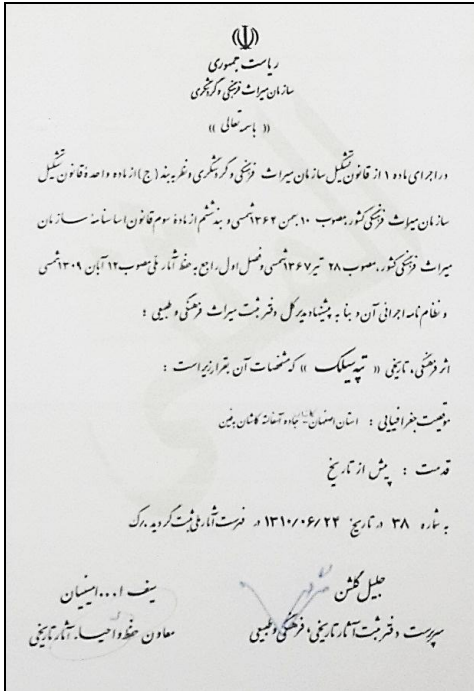 ریاست جمهوری
سازمان میراث فرهنگی و گردشگری
« باسمه تعالی »
در اجرای ماده ۱ از قانون تشکیل سازمان میراث فرهنگی و گردشگری و نظر به بند (ج) از ماده واحدهٔ قانون تشکیل
سازمان میراث فرهنگی کشور مصوب ۱۰ بهمن ۱۳۶۴ شمسی و بند ششم از مادهٔ سوم قانون اساسنامهٔ سازمان
میراث فرهنگی کشور مصوب ۲۸ تیر ۱۳۶۷ شمسی و فصل اول، راجع به حفظ آثار ملی مصوب ۱۲ آبان ۱۳۰۹ شمسی
و نظام نامه اجرائی آن و بنا به پیشنهاد مدیر کل دفتر ثبت میراث فرهنگی و طبیعی :
اثر فرهنگی، تاریخی « تپه سیلک » که مشخصات آن بقرار زیر است :
موقعیت جغرافیایی : استان اصفهان - جاده آسفالته کاشان به فین
قدمت : پیش از تاریخ
به شماره ۳۸ در تاریخ ۱۳۱۰/۰۶/۲۴ در فهرست آثار ملی ثبت گردید.
جلیل گلشن
سرپرست دفتر ثبت آثار تاریخی، فرهنگی و طبیعی
سیف ا... امینیان
معاون حفظ و احیاء آثار تاریخی